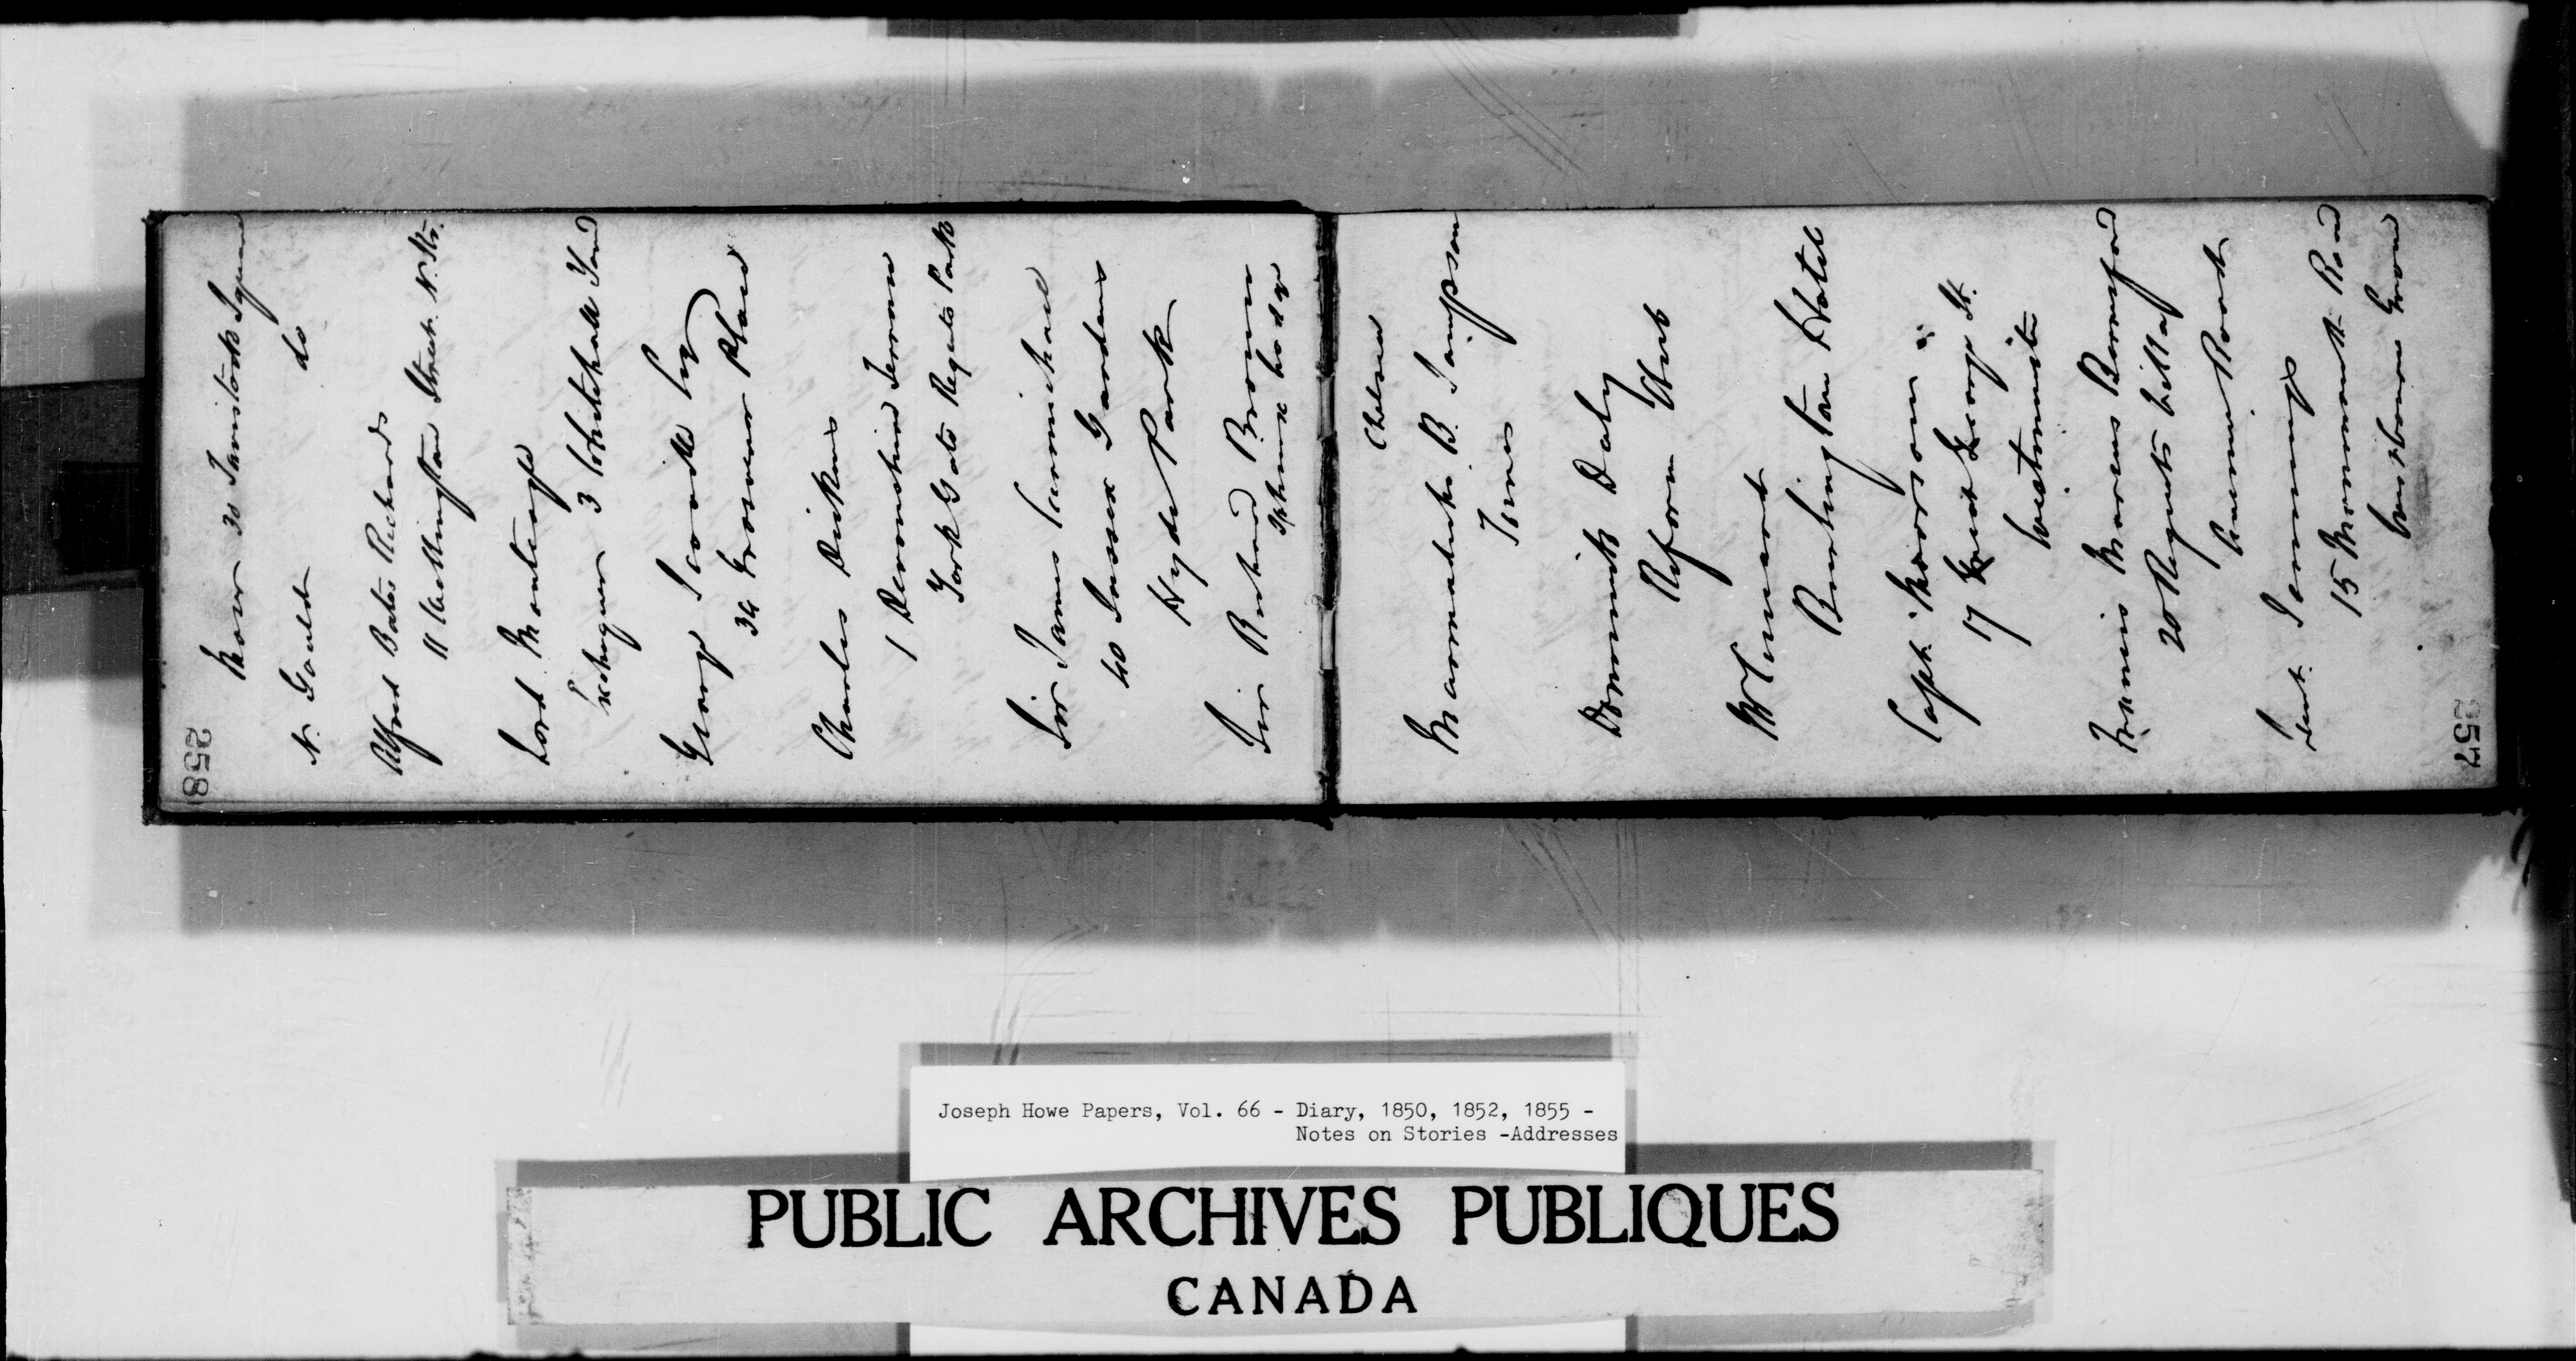 258
Moor 30 Tavistock Square
N. Gould do
Alfred Bates Richards
11 Wellington Street N. Str.
Lord Monteagle
Exchequer 3 Whitehall Yard
George Scovell
34 Grosvenor Place
Charles Dickens
1 Devonshire Terrace
York Gate Regents Park
Sir James Carmichael
40 Sussex Gardens
Hyde Park
Sir Richard Broun
Sphinx Lodge
Chelsea
Marmaduke B. Sampson
Times
Dominick Daly
Reform Club
Burlington Hotel
Capt. Moorsom
17 Great George St.
Westminster
Francis Marcus Beresford
20 Regents Villas
Avenue Road
Lieut. Jennings
15 Monmouth Road
Westbourne Grove
257
Joseph Howe Papers, Vol. 66 - Diary, 1850, 1852, 1855 -
Notes on Stories -Addresses
PUBLIC ARCHIVES PUBLIQUES
CANADA